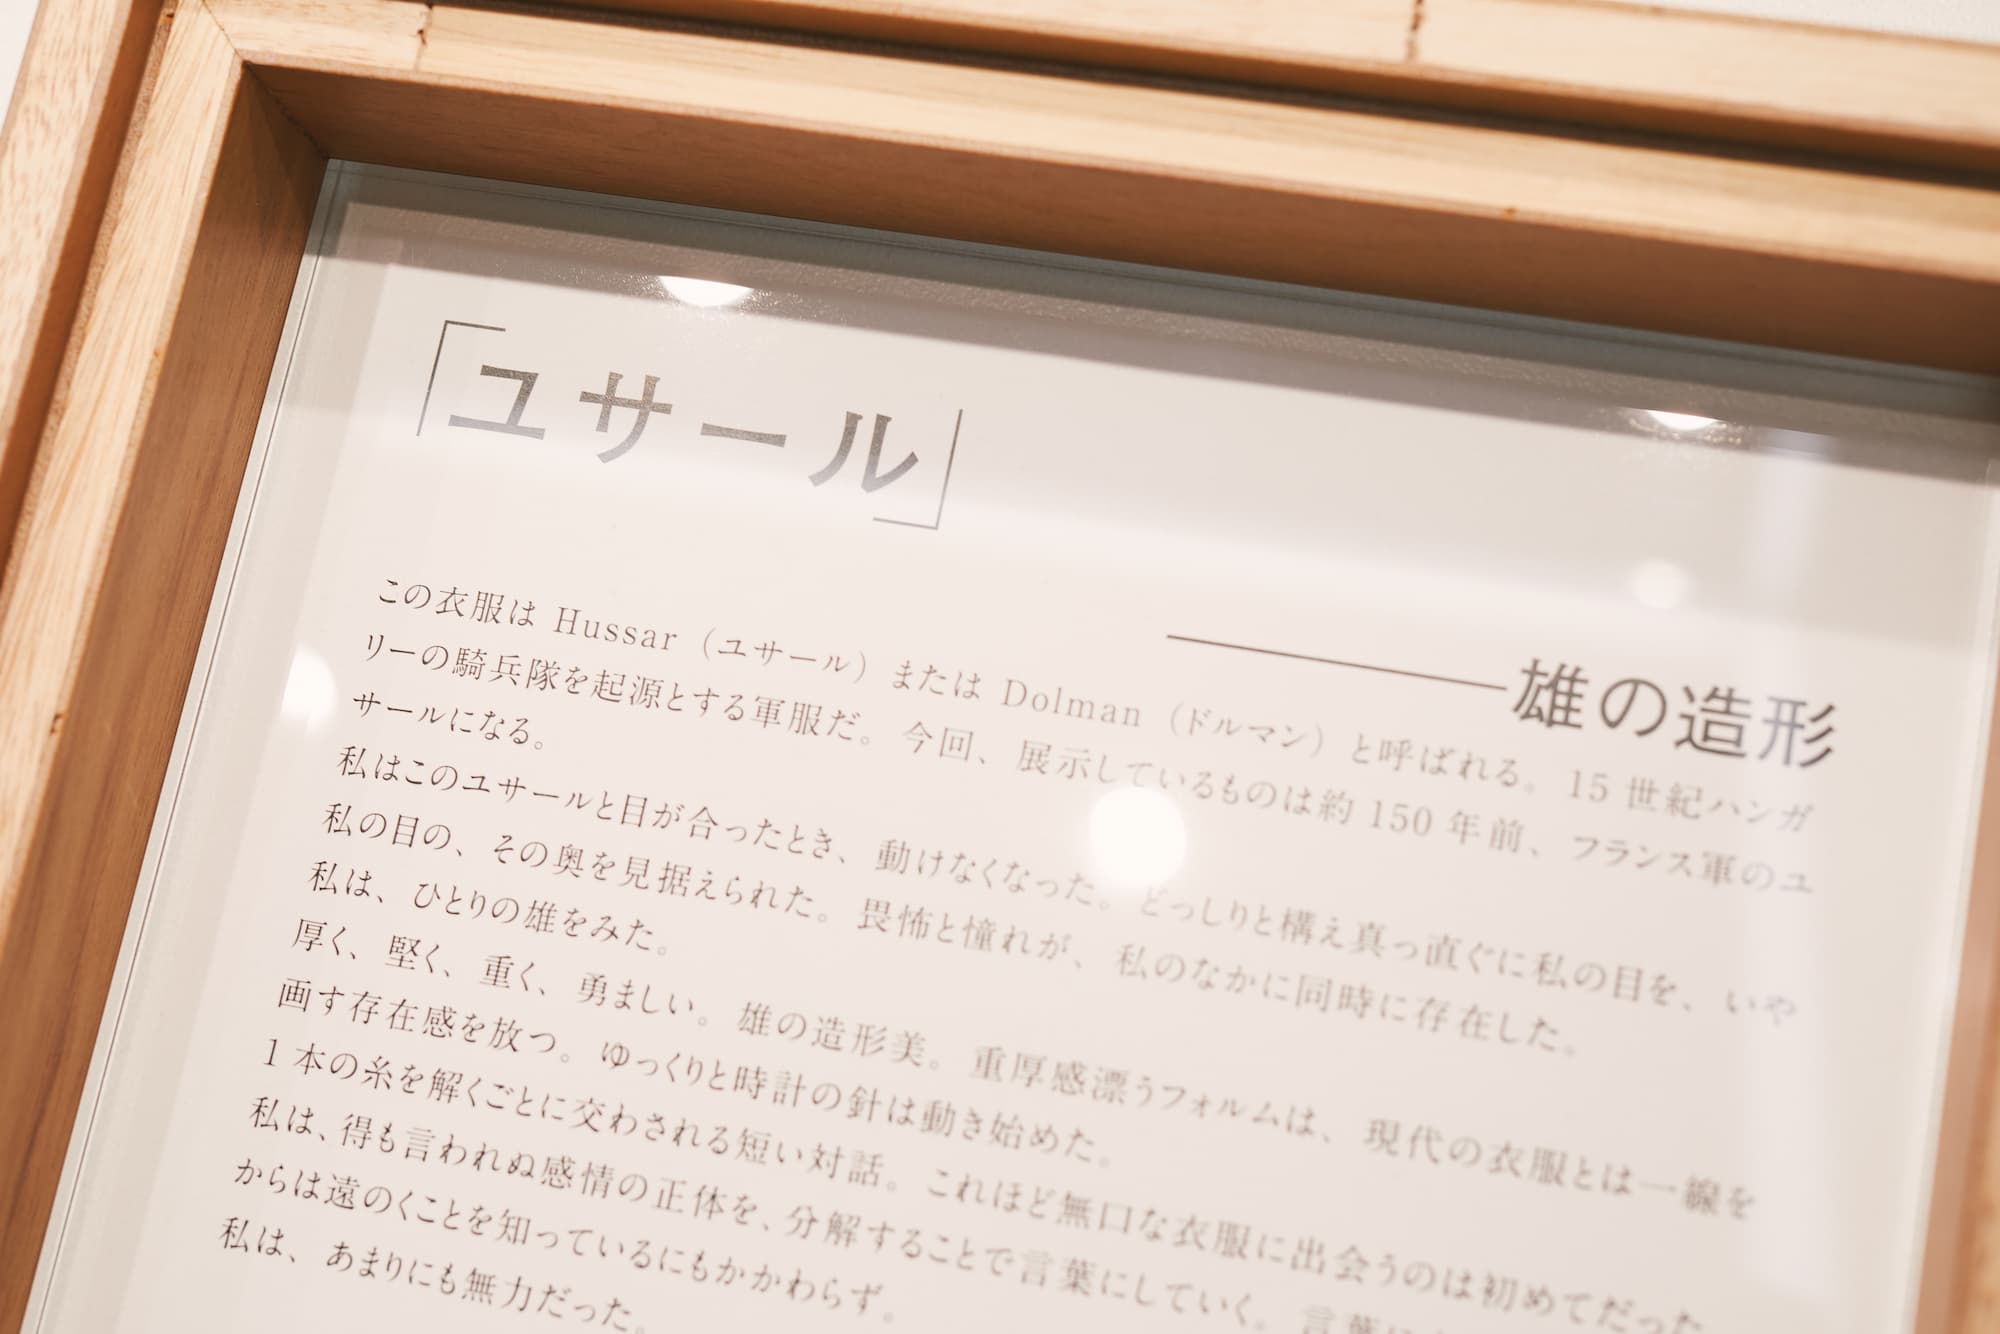 「ユサール」
――雄の造形
この衣服は Hussar（ユサール）または Dolman（ドルマン）と呼ばれる。15 世紀ハンガ
リーの騎兵隊を起源とする軍服だ。今回、展示しているものは約 150 年前、フランス軍のユ
サールになる。
私はこのユサールと目が合ったとき、動けなくなった。どっしりと構え真っ直ぐに私の目を、いや
私の目の、その奥を見据えられた。畏怖と憧れが、私のなかに同時に存在した。
私は、ひとりの雄をみた。
厚く、堅く、重く、勇ましい。雄の造形美。重厚感漂うフォルムは、現代の衣服とは一線を
画す存在感を放つ。ゆっくりと時計の針は動き始めた。
1 本の糸を解くごとに交わされる短い対話。これほど無口な衣服に出会うのは初めてだった
私は、得も言われぬ感情の正体を、分解することで言葉にしていく。言葉に
からは遠のくことを知っているにもかかわらず。
私は、あまりにも無力だった。